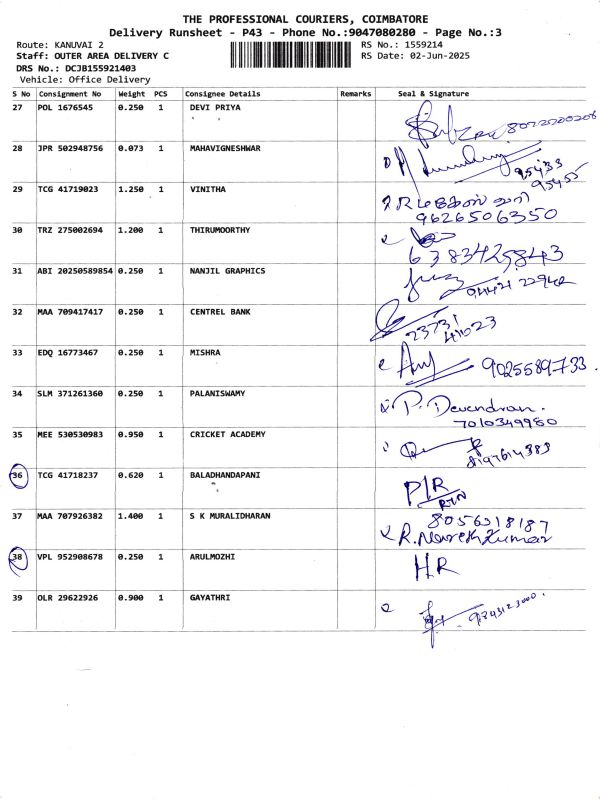 THE PROFESSIONAL COURIERS, COIMBATORE
Delivery Runsheet - P43 - Phone No.:9047080280 - Page No.:3
Route: KANUVAI 2
RS No.: 1559214
Staff: OUTER AREA DELIVERY C
RS Date: 02-Jun-2025
DRS No.: DCJB155921403
Vehicle: Office Delivery
S No Consignment No Weight PCS Consignee Details Remarks Seal & Signature
27 POL 1676545 0.250 1 DEVI PRIYA
28 JPR 502948756 0.073 1 MAHAVIGNESHWAR
95433
95455
29 TCG 41719023 1.250 1 VINITHA
9626506350
30 TRZ 275002694 1.200 1 THIRUMOORTHY
6383425843
31 ABI 20250589854 0.250 1 NANJIL GRAPHICS
32 MAA 709417417 0.250 1 CENTREL BANK
23731
33 EDQ 16773467 0.250 1 MISHRA
9025589733
34 SLM 371261360 0.250 1 PALANISWAMY
P. Devendran.
7010349980
35 MEE 530530983 0.950 1 CRICKET ACADEMY
8197614383
36 TCG 41718237 0.620 1 BALADHANDAPANI
P/R
RTN
37 MAA 707926382 1.400 1 S K MURALIDHARAN
8056318187
R. Naresh Kumar
38 VPL 952908678 0.250 1 ARULMOZHI
H.R
39 OLR 29622926 0.900 1 GAYATHRI
9843123000.